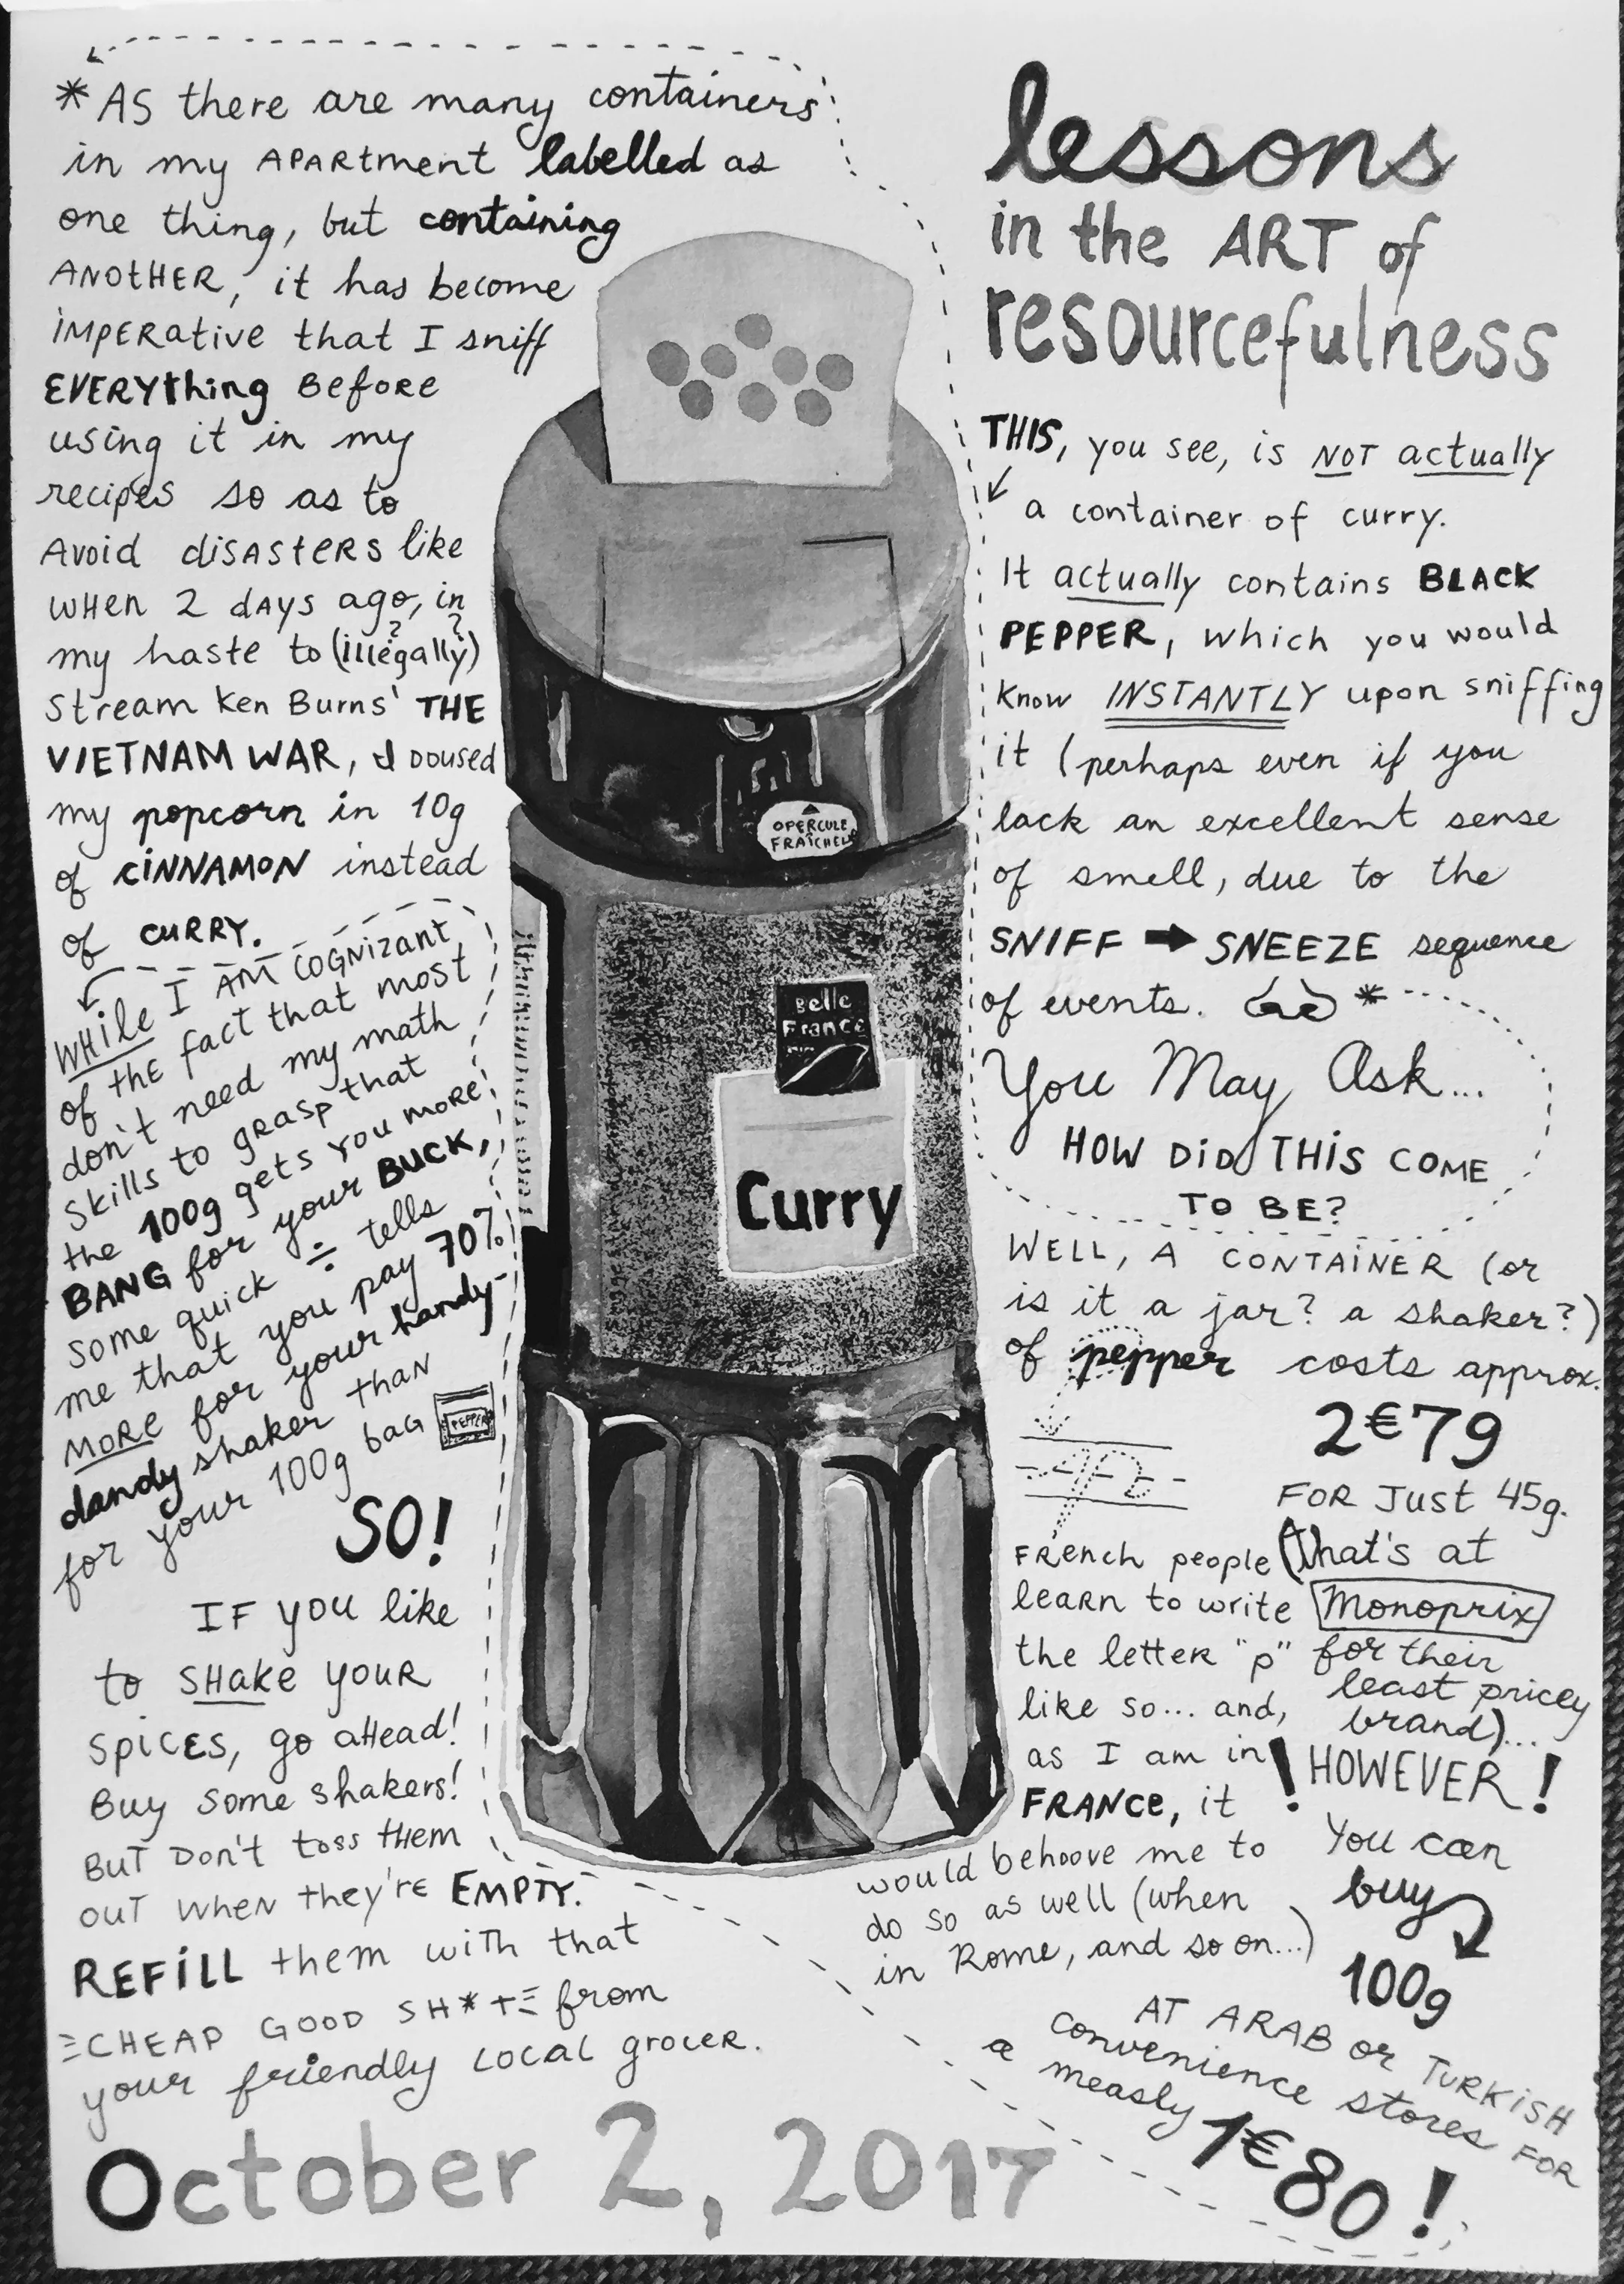 lessons
in the ART of
resourcefulness
THIS, you see, is NOT actually
a container of curry.
It actually contains BLACK
PEPPER, which you would
know INSTANTLY upon sniffing
it (perhaps even if you
lack an excellent sense
of smell, due to the
SNIFF ➡ SNEEZE sequence
of events. *
*AS there are many containers
in my APARtment labelled as
one thing, but containing
ANOtHER, it has become
iMPERative that I sniff
EVERYthing BefoRE
using it in my
recipes so as to
Avoid disAStERS like
WHen 2 dAYS ago, in
my haste to (illegally)
? ?
Stream Ken Burns' THE
VIETNAM WAR, I doused
my popcorn in 10g
of CiNNAMON instead
of CURRY.
You May Ask...
HOW DiD THiS COME
TO BE?
WELL, A CONTAiNER (or
is it a jar? a shaker?)
of pepper costs approx.
2€79
FOR Just 45g.
(that's at
Monoprix
for their
least pricey
brand)...
FRench people
leaRn to write
the letteR "p"
like so... and,
as I am in
FRANCe, it
would behoove me to
do so as well (when
in Rome, and so on...)
p
! HOWEVER!
You can
buy
100g
AT ARAB or TURKiSH
convenience stores FOR
a measly
1€80!
WHile I AM COGNizant
of tHE fact that most
don't need my math
skills to gRasp that
the 100g gets you moRE
BANG for your BUCK,
some quick ÷ tells
me that you pay 70%
MORE for your handy-
dandy shaker than
for your 100g baG
PEPPER
SO!
IF you like
to SHAke youR
SpiCES, go aHead!
Buy some shakers!
BUT Don't toss tHem
OUT WHeN they'rE EMPTY.
REFiLL them with that
CHEAP GOOD SH*T from
your friendly LOCAL groceR.
OPERCULE
FRAÎCHEUR
Belle
France
Curry
October 2, 2017